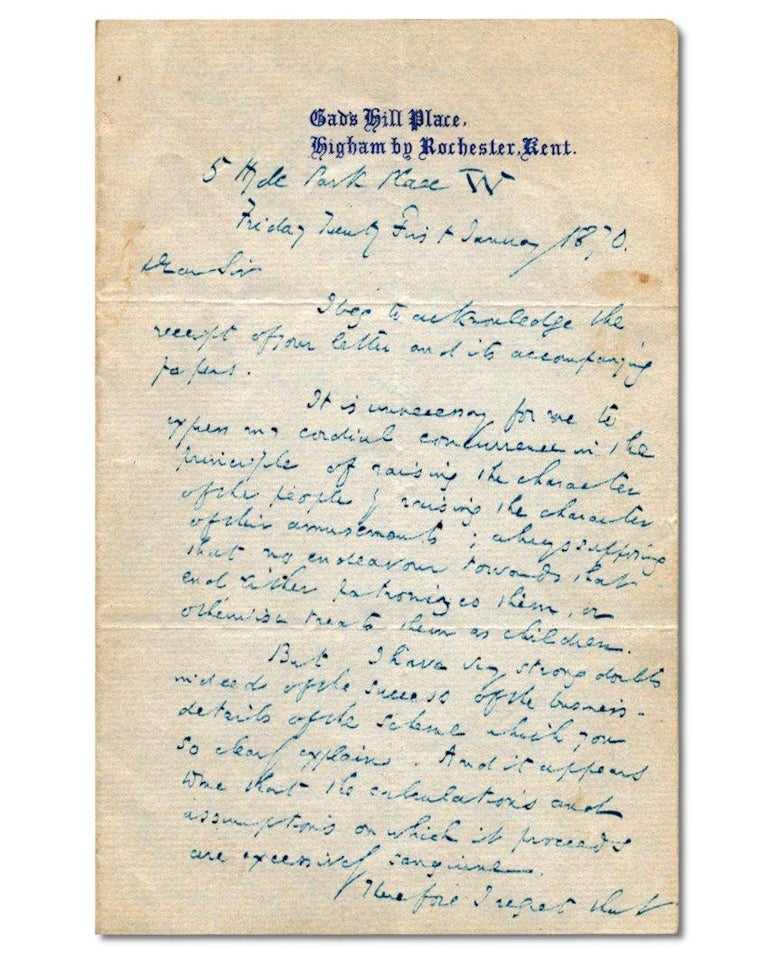 Gad's Hill Place,
Higham by Rochester, Kent.
5 Hyde Park Place W
Friday Twenty First January 1870.
Dear Sir
I beg to acknowledge the
receipt of your letter and its accompanying
papers.
It is unnecessary for me to
express my cordial concurrence in the
principle of raising the character
of the people by raising the character
of their amusements; always supposing
that no endeavour towards that
end either patronizes them, or
otherwise treats them as children.
But I have very strong doubts
indeed of the success of the business-
details of the scheme which you
so clearly explain. And it appears
to me that the calculations and
assumptions on which it proceeds
are excessively sanguine.
Therefore I regret that